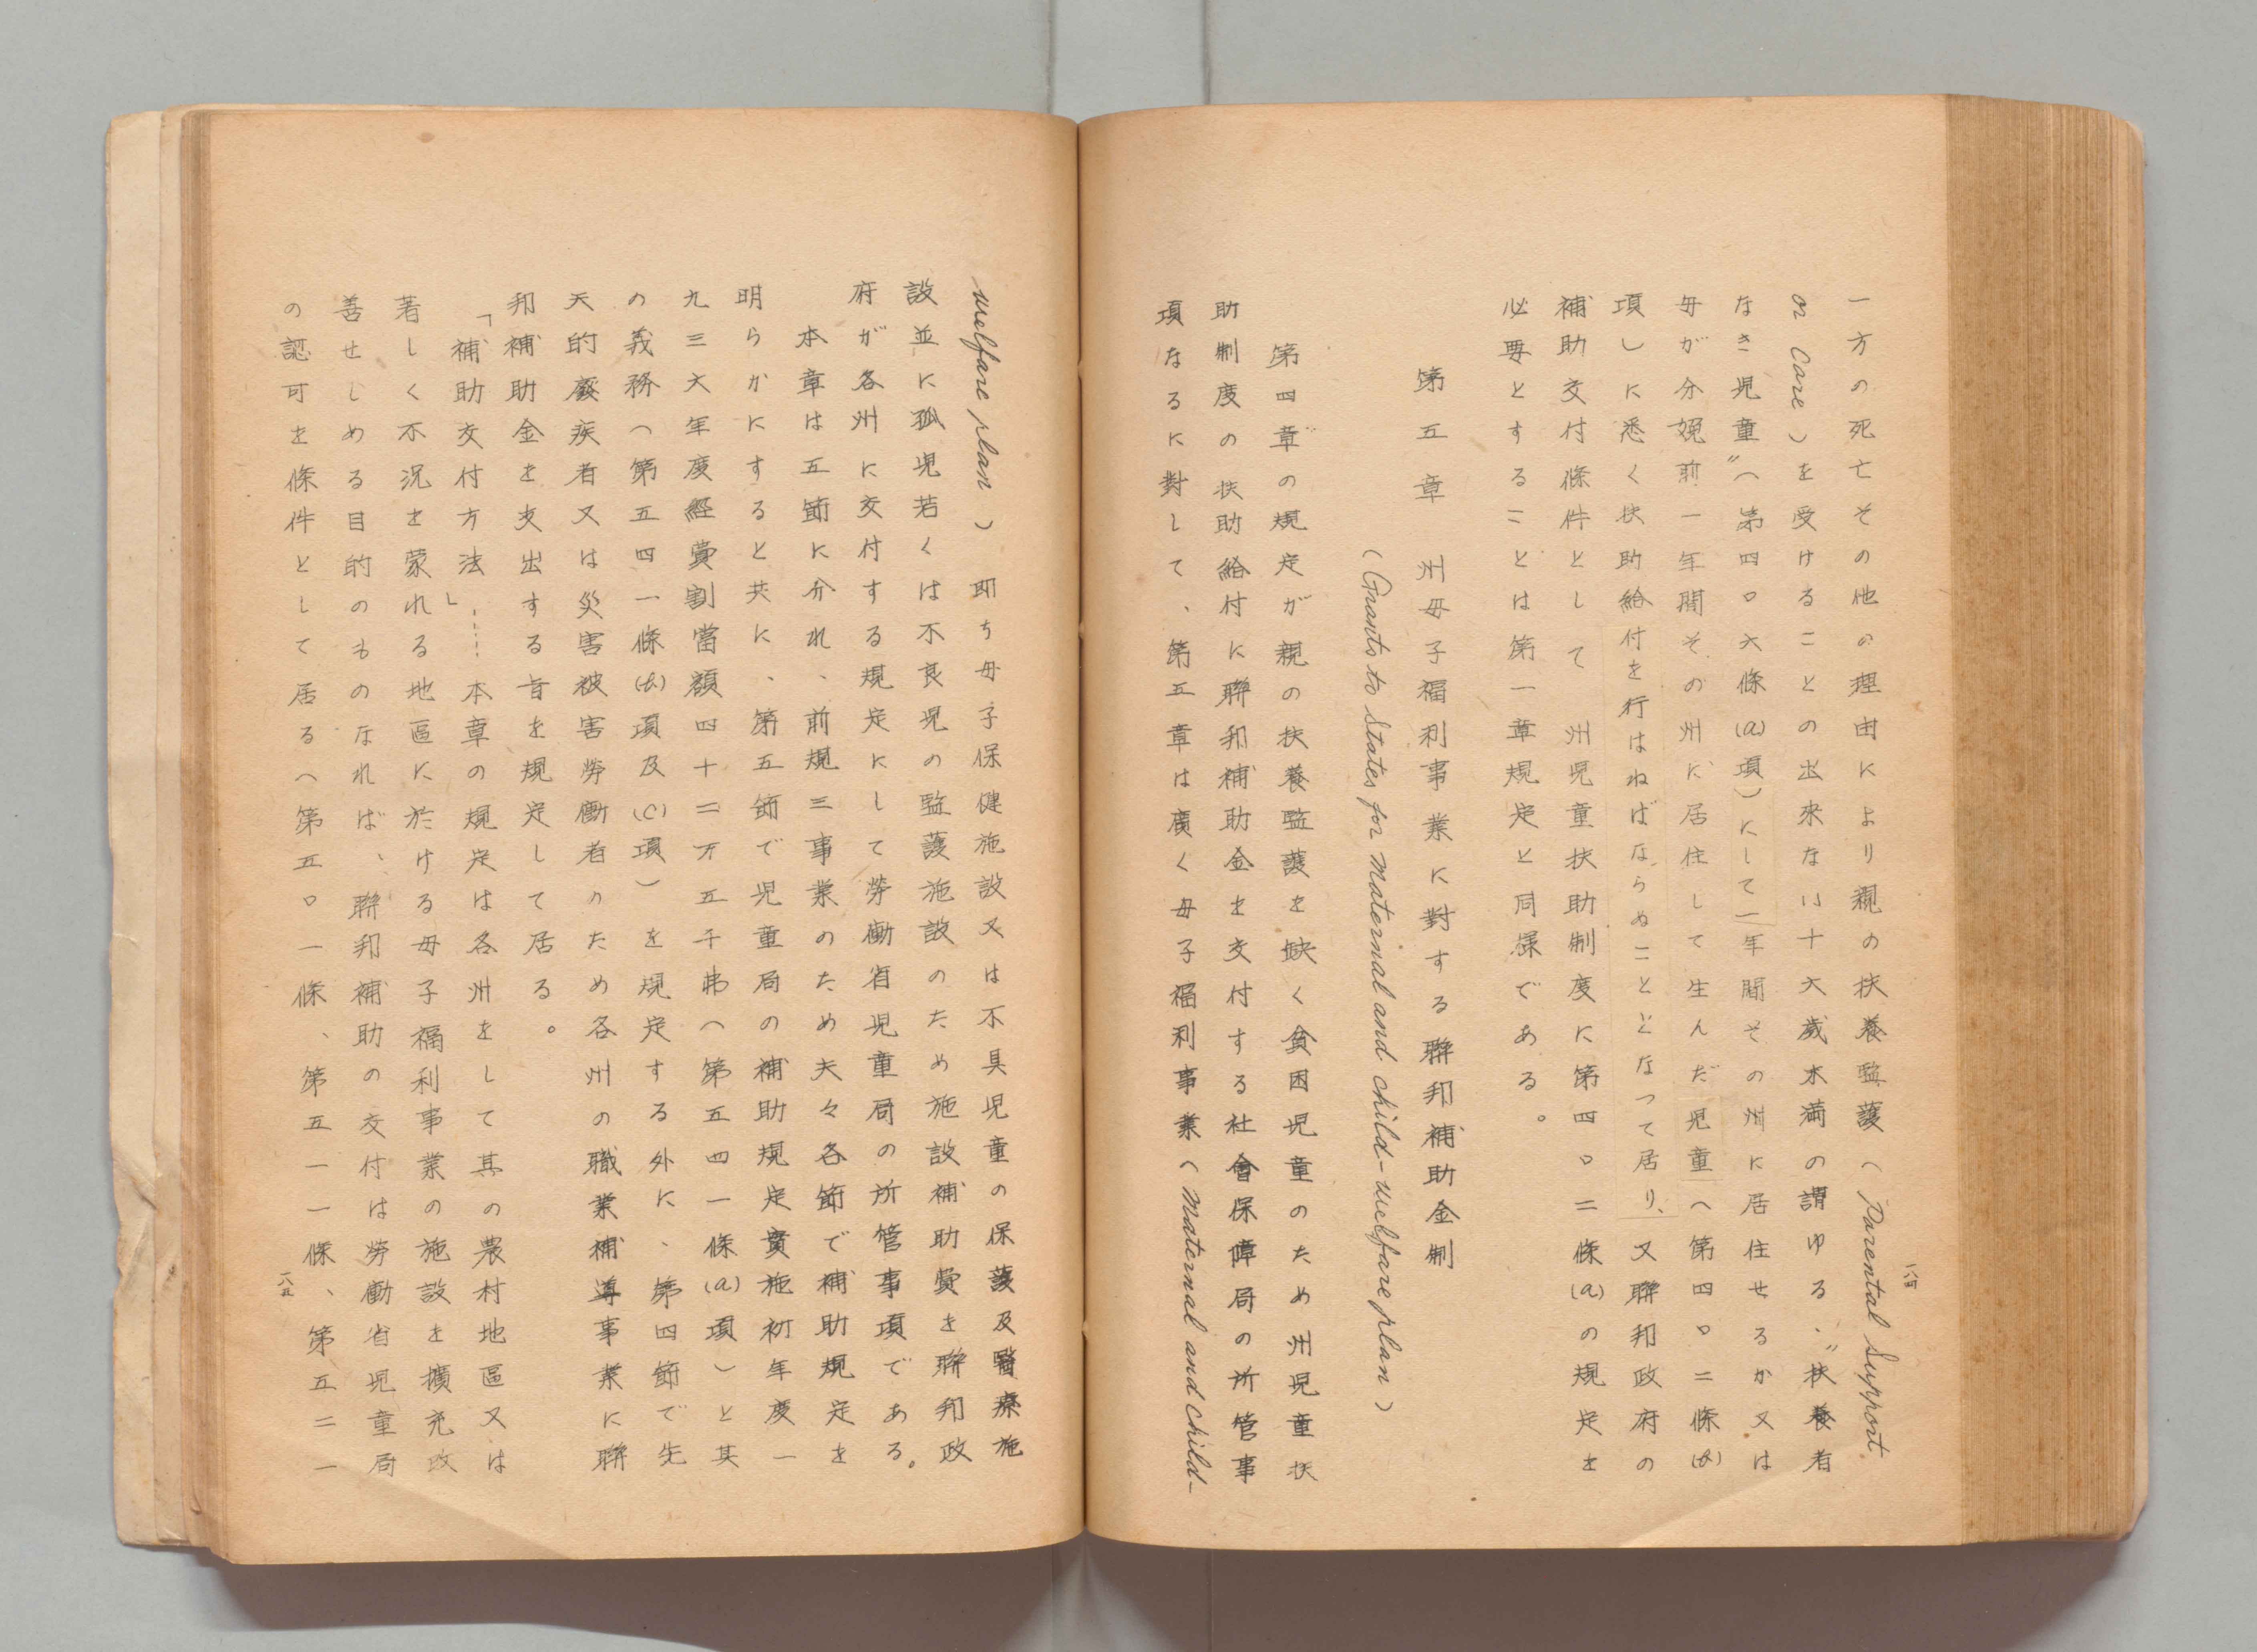 一方の死亡その他の理由により親の扶養監護（Parental Support
or Care）を受けることの出来ない十六歳未満の謂ゆる、〝扶養者
なき児童〟（第四〇六條(a)項）にして一年間その州に居住せるか又は
母が分娩前一年間その州に居住して生んだ児童（第四〇二條(b)
項）に悉く扶助給付を行はねばならぬこととなつて居り、又聯邦政府の
補助交付條件として州児童扶助制度に第四〇二條(a)の規定を
必要とすることは第一章規定と同様である。
第五章　州母子福利事業に對する聯邦補助金制
（Grants to States for maternal and child-welfare plan）
第四章の規定が親の扶養監護を缺く貧困児童のため州児童扶
助制度の扶助給付に聯邦補助金を交付する社會保障局の所管事
項なるに對して、第五章は廣く母子福利事業（maternal and child-
一八四
welfare plan）即ち母子保健施設又は不具児童の保護及醫療施
設並に孤児若くは不良児の監護施設のため施設補助費を聯邦政
府が各州に交付する規定にして勞働省児童局の所管事項である。
本章は五節に分れ、前規三事業のため夫々各節で補助規定を
明らかにすると共に、第五節で児童局の補助規定實施初年度一
九三六年度經費割當額四十二万五千弗（第五四一條(a)項）と其
の義務（第五四一條(b)項及(c)項）を規定する外に、第四節で先
天的廢疾者又は災害被害勞働者のため各州の職業補導事業に聯
邦補助金を支出する旨を規定して居る。
「補助交付方法」……本章の規定は各州をして其の農村地區又は
著しく不況を蒙れる地區に於ける母子福利事業の施設を擴充改
善せしめる目的のものなれば、聯邦補助の交付は勞働省児童局
の認可を條件として居る（第五〇一條、第五一一條、第五二一
一八五